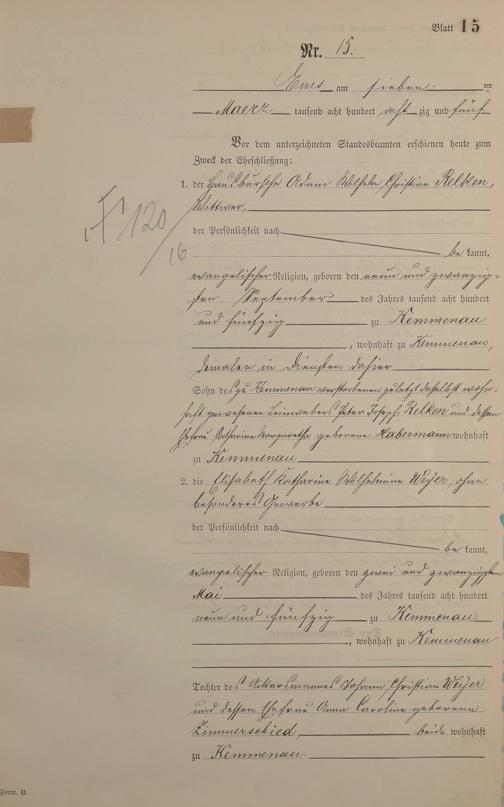 Blatt 15
Nr. 15.
Ems am sieben ten
Maerz tausend acht hundert acht zig und fünf
Vor dem unterzeichneten Standesbeamten erschienen heute zum
Zweck der Eheschließung:
1. der Hausbursche Adam Wilhelm Christian Relken,
Wittwer,
der Persönlichkeit nach
be kannt,
evangelischer Religion, geboren den neun und zwanzig-
sten September des Jahres tausend acht hundert
und fünfzig zu Kemmenau
, wohnhaft zu Kemmenau,
dermalen in Diensten dahier
Sohn des zu Kemmenau verstorbenen zuletzt daselbst wohn-
haft gewesenen Leinwebers Peter Joseph Relken und dessen
Ehefrau Catharine Margaretha geborene Habermann wohnhaft
zu Kemmenau
2. die Elisabeth Katharine Wilhelmine Weyer, ohne
besonderes Gewerbe
der Persönlichkeit nach
be kannt,
evangelischer Religion, geboren den zwei und zwanzigsten
Mai des Jahres tausend acht hundert
neun und fünfzig zu Kemmenau
, wohnhaft zu Kemmenau
Tochter des Ackersmannes Johann Christian Weyer
und dessen Ehefrau Anna Caroline geborene
Zimmerschied, beide wohnhaft
zu Kemmenau.
Form. B.
120
16